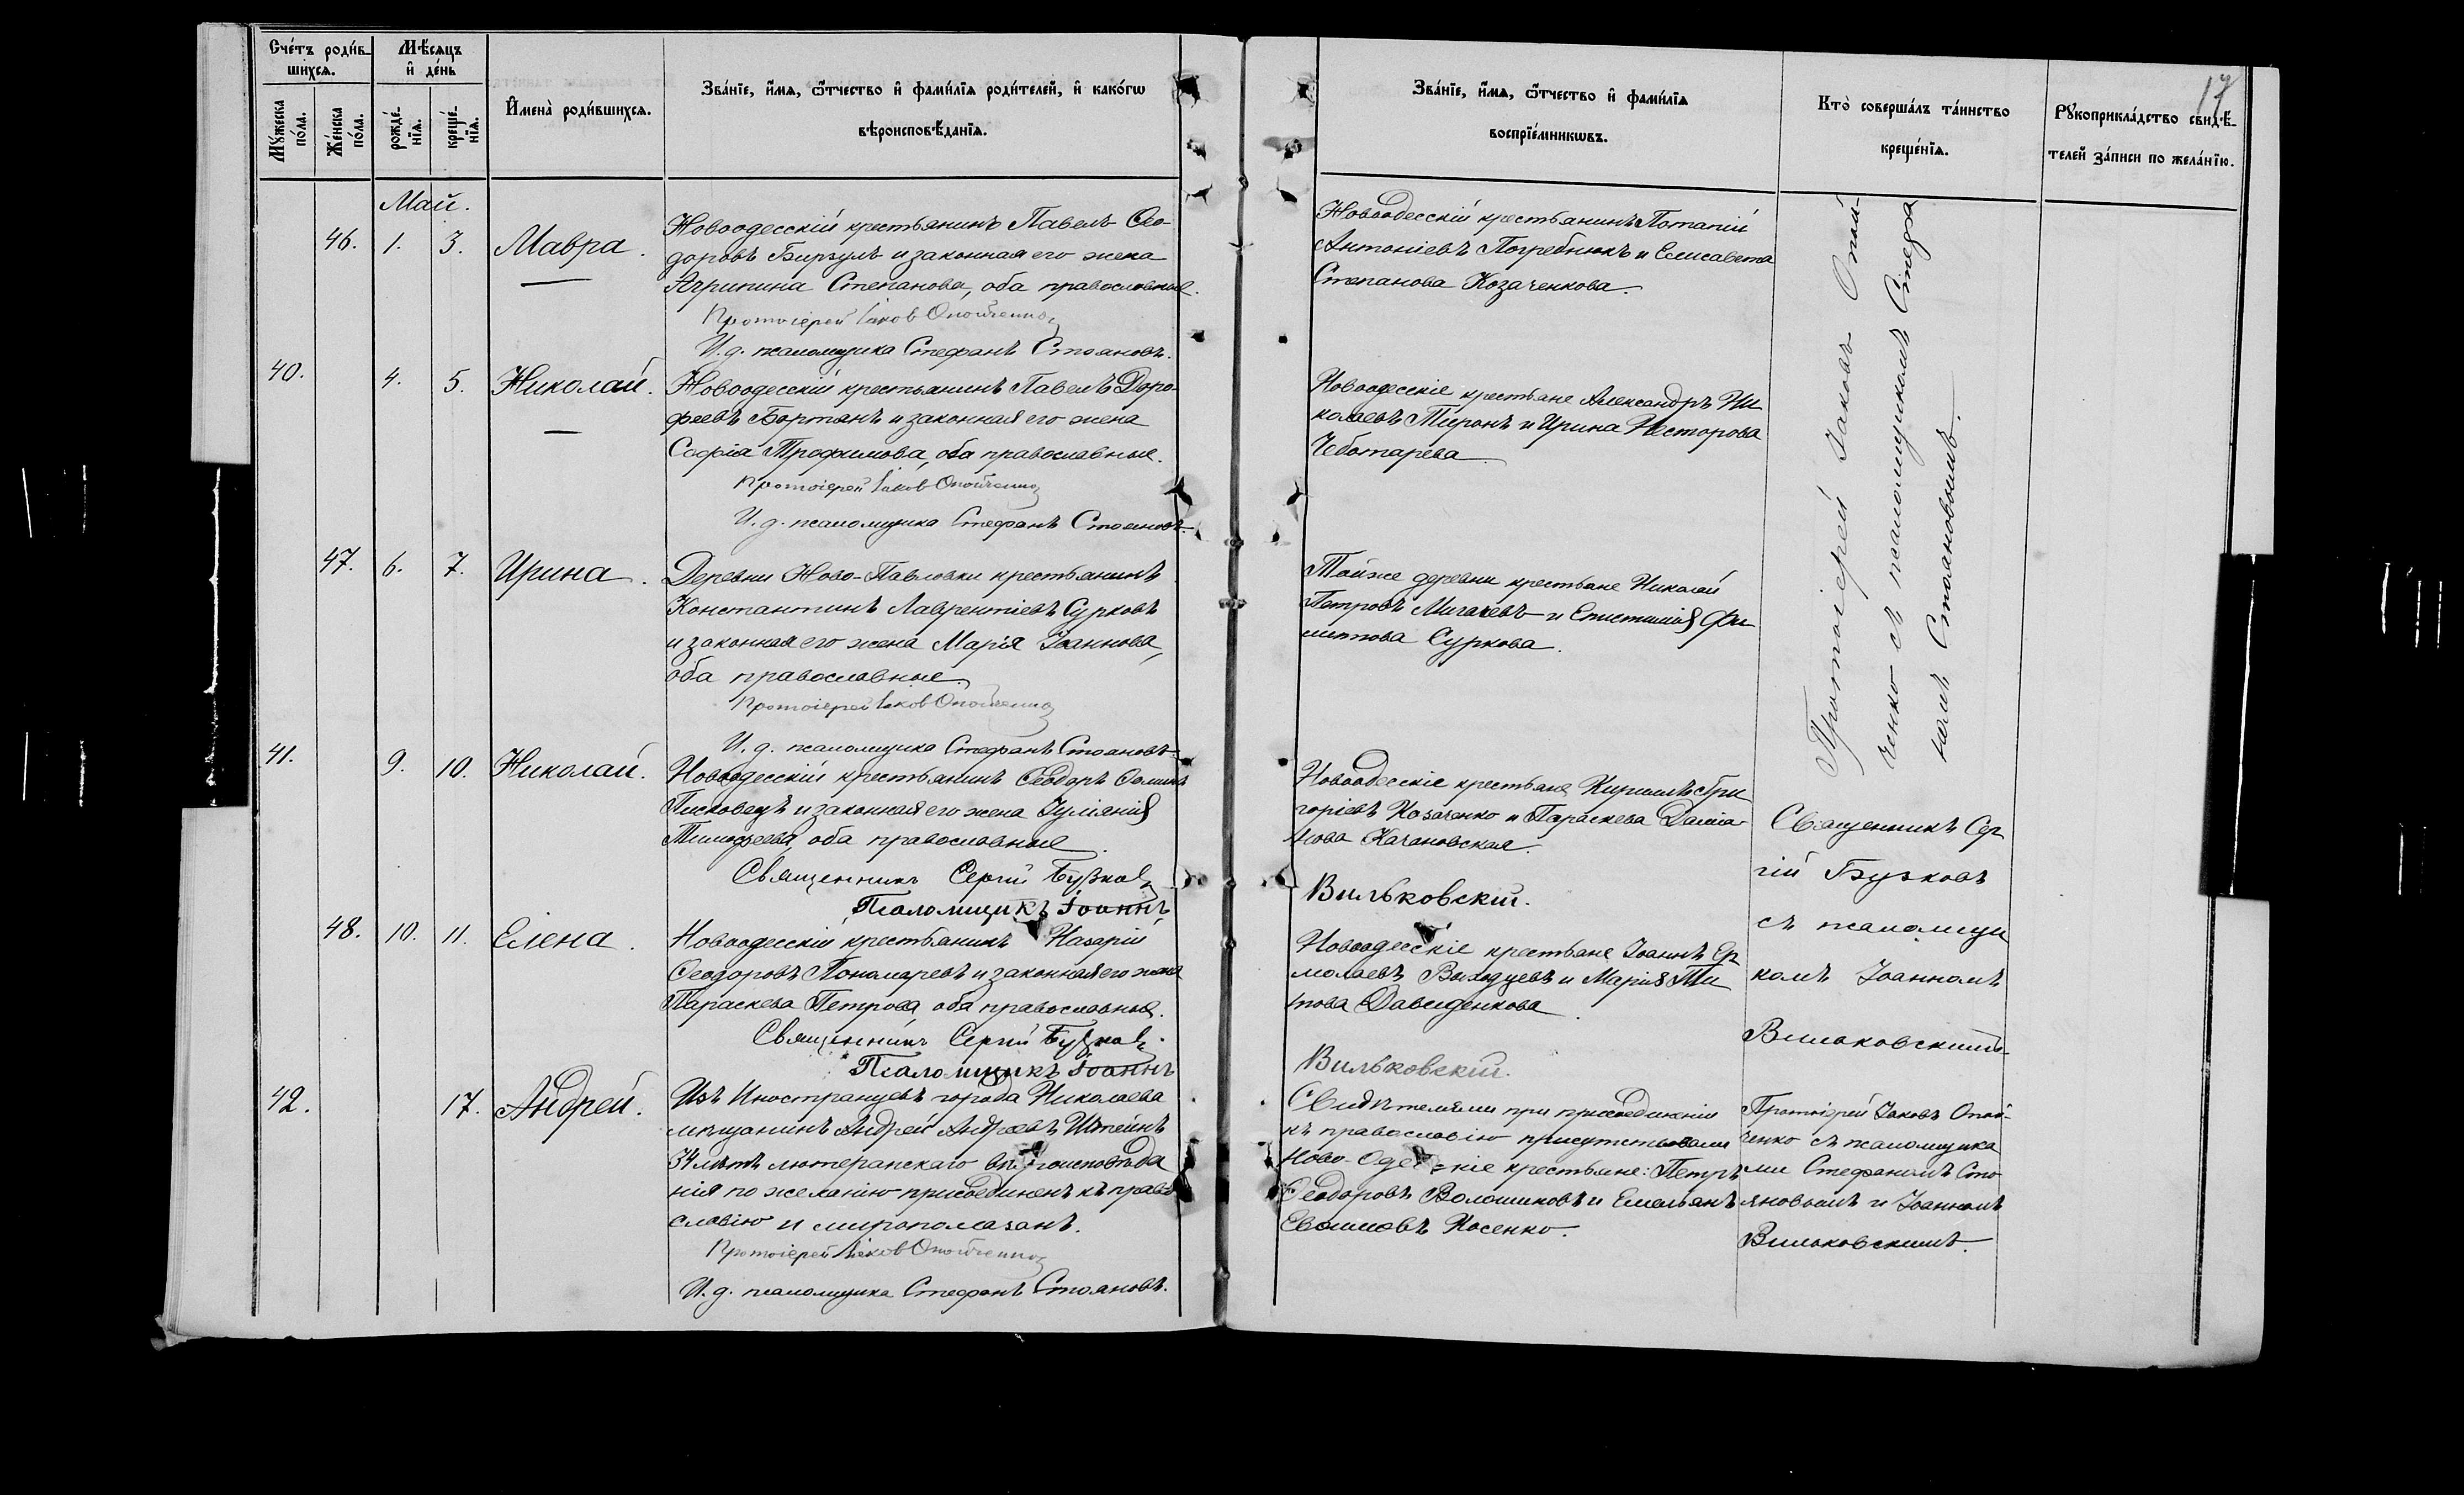 17
Счётъ роди́в-
шихся.
Мѣсяцъ
и день
Мужеска
по́ла.
Же́нска
по́ла.
рожде́-
нія.
креще́-
нія.
Имена̀ роди́вшихся.
Зва́ніе, и́мя, ѻ҆́тчество и҆ фами́лїя роди́телей, и҆ како́гѡ
вѣроисповѣ́данїя.
Зва́ніе, и́мя, ѻ҆́тчество и҆ фами́лїя
воспрїе́мникѡвъ.
Кто̀ соверша́лъ та́инство
креще́нїя.
Рꙋкоприкла́дство свидѣ́-
телей за́писи по жела́нїю.
Май.
46. 1. 3. Мавра.
Новоодесскій крестьянинъ Павелъ Ѳео-
доровъ Бирзулъ и законная его жена
Агрипина Степанова, оба православные.
Протоіерей Іаковъ Опойченко
И. д. псаломщика Стефанъ Стояновъ.
Новоодесскій крестьянинъ Потапій
Антоніевъ Погребнюкъ и Елисавета
Степанова Козаченкова.
40. 4. 5. Николай.
Новоодесскій крестьянинъ Павелъ Доро-
феевъ Бортянъ и законная его жена
Софія Трофимова, оба православные.
Протоіерей Іаковъ Опойченко
И. д. псаломщика Стефанъ Стояновъ.
Новоодесскіе крестьяне Александръ Ни
колаевъ Миронъ и Ирина Несторова
Чеботарева.
47. 6. 7. Ирина.
Деревни Ново-Павловки крестьянинъ
Константинъ Лаврентіевъ Сурковъ
и законная его жена Марія Іоаннова,
оба православные.
Протоіерей Іаковъ Опойченко
И. д. псаломщика Стефанъ Стояновъ.
Тойже деревни крестьяне Николай
Петровъ Мигачевъ и Епистимія Фи
липпова Суркова.
Протоіерей Іаковъ Опой-
ченко съ псаломщикомъ Стефа
номъ Стояновымъ.
41. 9. 10. Николай.
Новоодесскій крестьянинъ Ѳеодоръ Ѳоминъ
Писковецъ и законная его жена Іуліанія
Тимофеева, оба православные.
Священникъ Сергій Бузковъ
Псаломщикъ Іоаннъ
Новоодесскіе крестьяне Кириллъ Гри
горіевъ Козаченко и Параскева Даміа-
нова Качановская.
Вильковскій.
Священникъ Сер
гій Бузковъ
съ псаломщи
комъ Іоанномъ
Вильковскимъ.
48. 10. 11. Елена.
Новоодесскій крестьянинъ Назарій
Ѳеодоровъ Пономаревъ и законная его жена
Параскева Петрова, оба православные.
Священникъ Сергій Бузковъ.
Псаломщикъ Іоаннъ
Новоодесскіе крестьяне Іоаннъ Ер
молаевъ Выходцевъ и Марія Ти
това Давиденкова.
Вильковскій.
42. 17. Андрей.
Изъ Иностранцевъ города Николаева
мѣщанинъ Андрей Андреевъ Штейнъ
34 лѣтъ лютеранскаго вѣроисповѣда
нія по желанію присоединенъ къ право
славію и миропомазанъ.
Протоіерей Іаковъ Опойченко
И. д. псаломщика Стефанъ Стояновъ.
Свидѣтелями при присоединеніи
къ православію присутствовали
Ново-Одесскіе крестьяне: Петръ
Ѳеодоровъ Волошиновъ и Емельянъ
Евѳимовъ Косенко.
Протоіерей Іаковъ Опой-
ченко съ псаломщика
ми Стефаномъ Сто
яновымъ и Іоанномъ
Вильковскимъ.